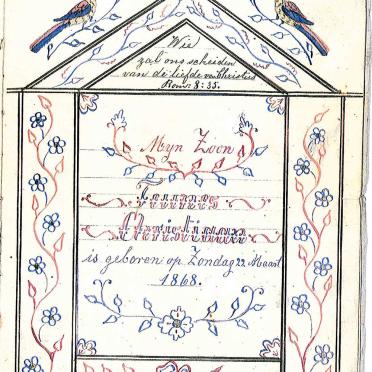 Wie
zal ons scheiden
van de liefde van Christus
Rom: 8:35.
Myn Zoon
Christiaan
is geboren op Zondag 22 Maart
1868.